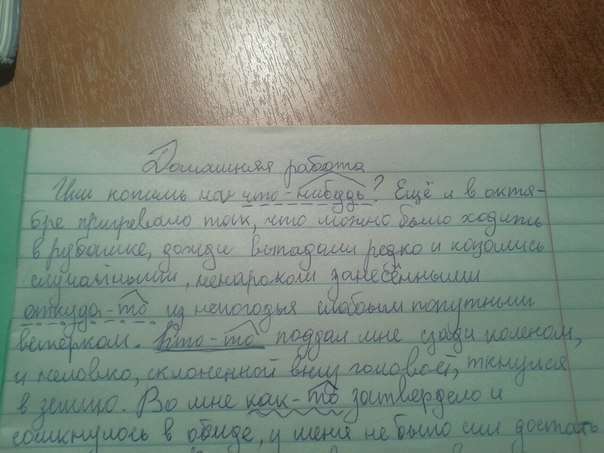 Домашняя работа
Или копишь на что-нибудь? Ещё и в октя-
бре пригревало так, что можно было ходить
в рубашке, дожди выпадали редко и казались
случайными, ненароком занесёнными
откуда-то из непогодья слабым попутным
ветерком. Кто-то поддал мне сзади коленом,
и неловко, склоненной вниз головой, ткнулся
в землю. Во мне как-то затвердело и
сомкнулось в обиде, у меня не было сил достать